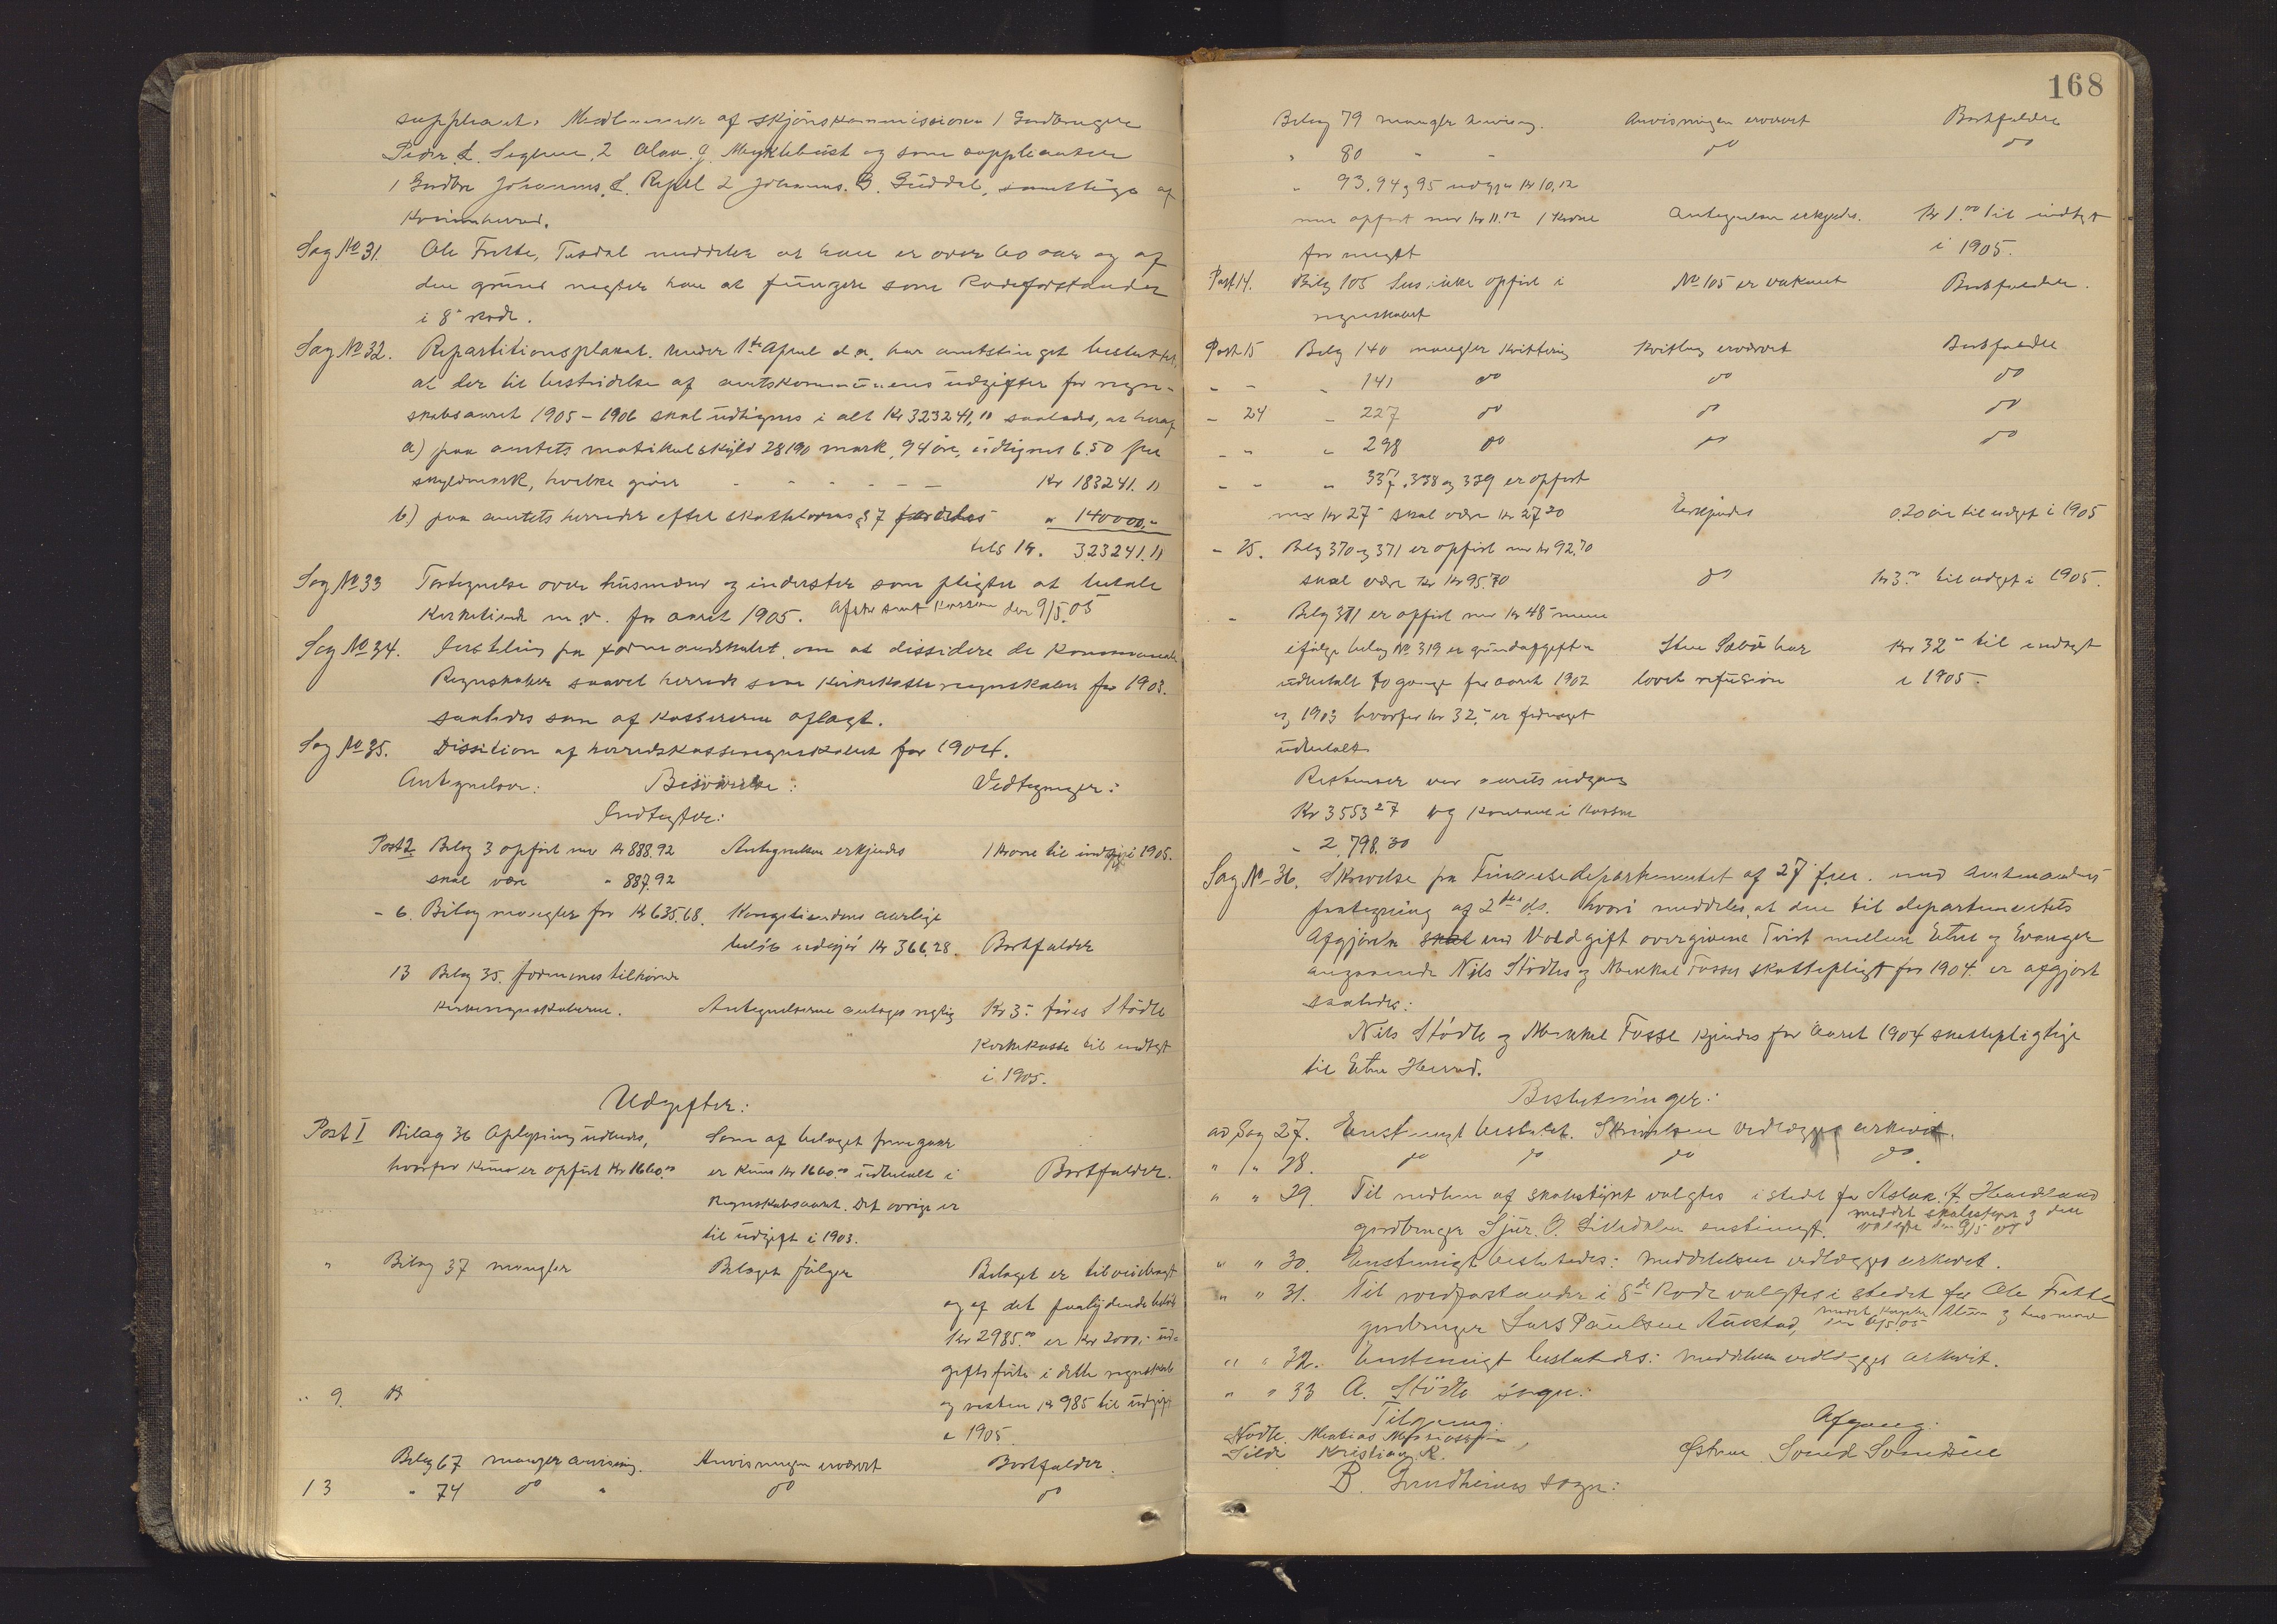 suppleant. Medlemmer af Skjönskommissionen 1 Gardbrugere
Peder. L. 2 Olav. J. Myklebust og som suppleanter
1 Gardbr Johannes. L. 2 Johannes. G. Guddal, samtlige af
Kvinnherred.
Sag No 31. Ole Frette, Tesdal meddeler at han er over 60 aar og af
den grund negter han at fungere som Rodeforstander
i 8de Rode.
Sag No 32. Repartitionsplakat. Under 1ste April d.a. har amtstinget besluttet,
at der til bestridelse af amtskommunens udgifter for regn-
skabsaaret 1905-1906 skal udlignes i alt Kr 323241,11 saaledes, at heraf
a) paa amtets matrikulskyld 28190 mark, 94 öre, udlignes 6.50 per
skyldmark, hvilke gjør - - - - - - Kr 183241.11
b) paa amtets herreder efter skatteloven § 7 fordeles " 140000,-
tils Kr. 323241.11
Sag No 33 Fortegnelse over husmænd og inderster som pligter at betale
Kirketiende m.v. for aaret 1905. Afskr sendt Kassereren den 9/5.05
Sag No 34. Indstilling fra formandskabet, om at dissidere de Kommunale
Regnskaber saavel herreds som Kirkekasseregnskaber for 1903.
saaledes som af Kassererne aflagt.
Sag No 35. Dissition af herredskasseregnskabet for 1904.
Antegnelser: Besvarelse: Vedtegninger:
Indtegter:
Post 2 Bilag 3 opfört med Kr 888.92 Antegnelsen erkjendes 1 Krone til indtegt i 1905.
skal være " 887.92
- 6. Bilag mangler for Kr 635.68. Kongetiendens aarlige
belöb udgjör Kr 366.28. Bortfalder
13 Bilag 35. formenes tilhörende
Kirkeregnskaberne. Antegnelserne antages rigtig Kr 3.- föres Stödle
Kirkekasse til indtegt
i 1905.
Udgifter:
Post I Bilag 36 Oplysning udbedes, Som af bilaget fremgaar
hvorfor Kuns er opfört Kr 1660.00 er Kuns Kr 1660.00 udbetalt i Bortfalder.
Regnskabsaaret. Det övrige er
til udgift i 1903.
" Bilag 37 mangler Bilaget fölger Bilaget er tilveiebragt
og af det paalydende belöb
Kr 2985.00 er Kr 2000,- ud-
giftsförte i dette regnskab
" 9. og resten Kr 985 til udgift
i 1905
Bilag 67 mangler anvisning. Anvisningen ervervet Bortfalder.
13 " 74 do " do do
168
Bilag 79 mangler anvisning. Anvisningen ervervet Bortfalder
" 80 " " do do
" 93.94 og 95 udgjør Kr 10,12
men opfört med Kr 11.12 1 Krone Antegnelsen erkjendes. Kr 1.00 til indtegt
for meget i 1905.
Post 14. Bilag 105 sees ikke opfört i No 105 er vakant Bortfalder.
regnskabet
Post 15 Bilag 140 mangler Kvittering Kvittering ervervet Bortfalder
- - " 141 do do do
- 24 - 227 do do do
- - " 298 do do do
- - " 337, 338 og 339 er opfört
med Kr 27.- skal være Kr 27.20 Erkjendes 0.20 öre til udgift i 1905
- 25. Bilag 370 og 371 er opfört med Kr 92.70
skal være Kr Kr 95.70 do Kr 3.00 til udgift i 1905.
- Bilag 381 er opfört med Kr 48.- men
ifölge bilag No 319 er grundafgiften Sten Sæbö har Kr 32.- til indtegt
udbetalt to gange for aaret 1902 lovet refusion i 1905.
og 1903 hvorfor Kr 32,- er formeget
udbetalt
Restancer ved aarets udgang
Kr 3553.27 og Kontant i Kassen
" 2,798.30
Sag No 36. Skrivelse fra Finansdepartementet af 27 f.m. med Amtmandens
paategning af 2den ds. hvori meddeles, at den til departementets
Afgjörelse skal ved Voldgift overgivene Tvist mellem Etne og Evanger
angaaende Nils Stödles og Mikkel Fosses skattepligt for 1904 er afgjort
saaledes:
Nils Stödle og Mikkel Fosse Kjendes for Aaret 1904 skattepligtige
til Etne Herred.
Beslutninger:
ad Sag 27. Enstemmigt besluttet. Skrivelsen vedlægges arkivet.
" " 28. do do do do.
" " 29. Til medlem af skolestyret valgtes i stedet for Aslak. J. Haaland
gardbruger Sjur. O. Silledalen enstemmigt. meddelt skolestyret og den valgte den 9/5 05
" " 30. Enstemmigt besluttedes: meddelelsen vedlægges arkivet.
" " 31. Til rodeforstander i 8de Rode valgtes i stedet for Ole Frette
gardbruger Lars Paulsen Austad,
" " 32. Enstemmigt besluttedes: meddelelsen vedlægges arkivet.
" " 33 A. Stödle sogn:
Tilgang. Afgang.
Stödle. Mathias
Silde Kristian R. Östrem Sond Sondsen
B. Grindheims sogn: